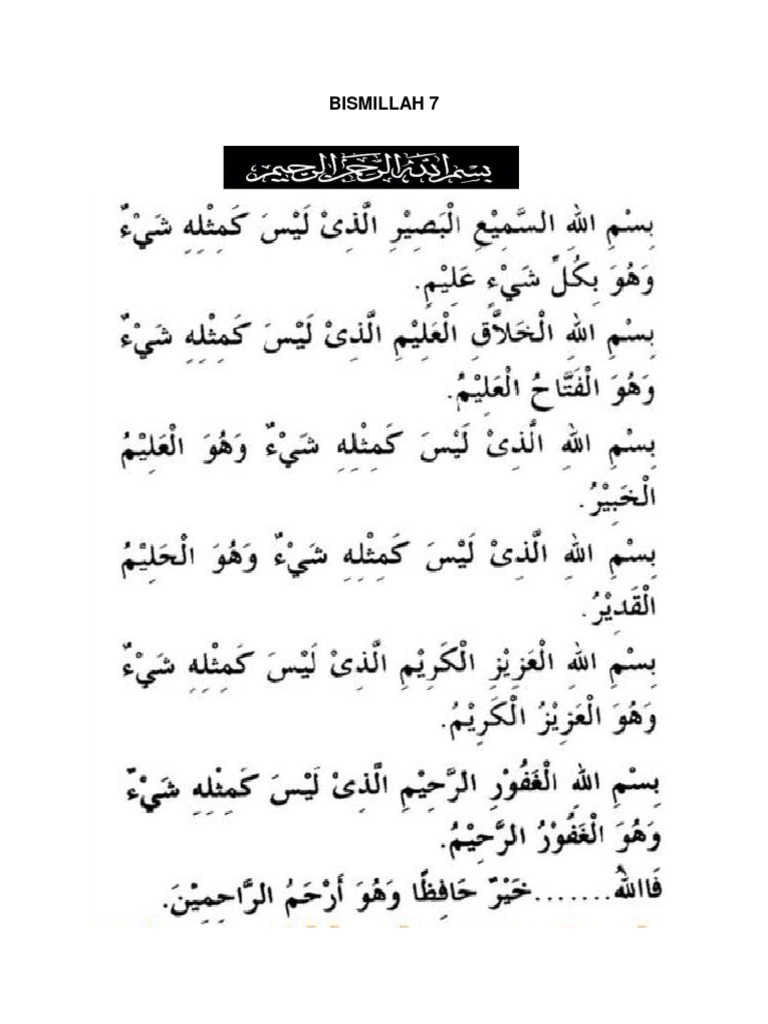 BISMILLAH 7
بسم الله الرحمن الرحيم
بِسْمِ اللهِ السَّمِيْعِ الْبَصِيْرِ الَّذِىْ لَيْسَ كَمِثْلِهِ شَيْءٌ
وَهُوَ بِكُلِّ شَيْءٍ عَلِيْمٍ.
بِسْمِ اللهِ الْخَلاَّقِ الْعَلِيْمِ الَّذِىْ لَيْسَ كَمِثْلِهِ شَيْءٌ
وَهُوَ الْفَتَّاحُ الْعَلِيْمُ.
بِسْمِ اللهِ الَّذِىْ لَيْسَ كَمِثْلِهِ شَيْءٌ وَهُوَ الْعَلِيْمُ
الْخَبِيْرُ.
بِسْمِ اللهِ الَّذِىْ لَيْسَ كَمِثْلِهِ شَيْءٌ وَهُوَ الْحَلِيْمُ
الْقَدِيْرُ.
بِسْمِ اللهِ الْعَزِيْزِ الْكَرِيْمِ الَّذِىْ لَيْسَ كَمِثْلِهِ شَيْءٌ
وَهُوَ الْعَزِيْزُ الْكَرِيْمُ.
بِسْمِ اللهِ الْغَفُوْرِ الرَّحِيْمِ الَّذِىْ لَيْسَ كَمِثْلِهِ شَيْءٌ
وَهُوَ الْغَفُوْرُ الرَّحِيْمُ.
فَاللهُ.......خَيْرٌ حَافِظًا وَهُوَ أَرْحَمُ الرَّاحِمِيْنَ.